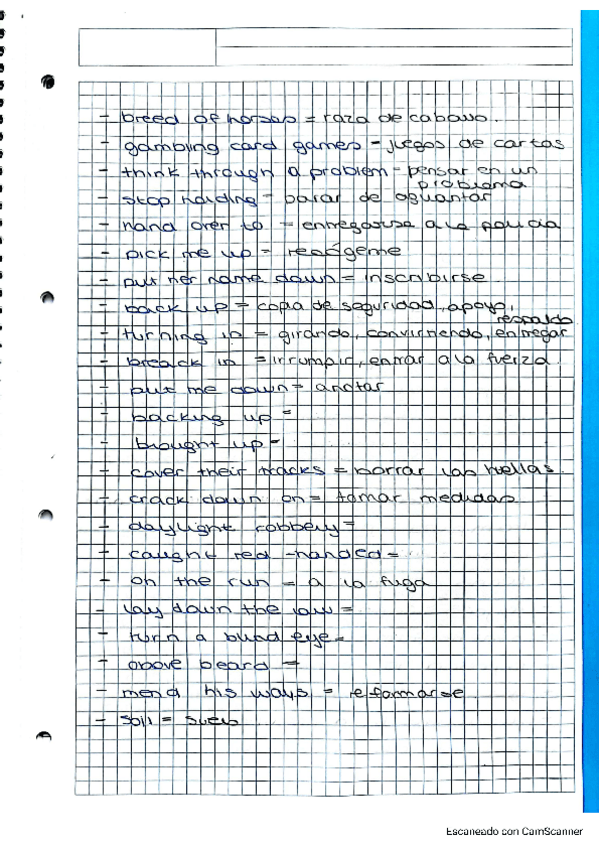 - breed of horses = raza de caballo.
- gambling card games - juegos de cartas
- think through a problem - pensar en un
problema
- stop holding - parar de aguantar
- hand over to - entregarse a la policia
- pick me up = recógeme
- put her name down = inscribirse
- back up = copia de seguridad, apoyo,
respaldo
- turning in = girando, convirtiendo, entregar
- breack in = irrumpir, entrar a la fuerza
- put me down = anotar
- backing up =
- brought up =
- cover their tracks = borrar las huellas.
- crack down on = tomar medidas
- daylight robbery =
- caught red-handed =
- on the run = a la fuga
- lay down the law =
- turn a blind eye -
- above beard =
- mend his ways = reformarse
- soil = suelo
Escaneado con CamScanner